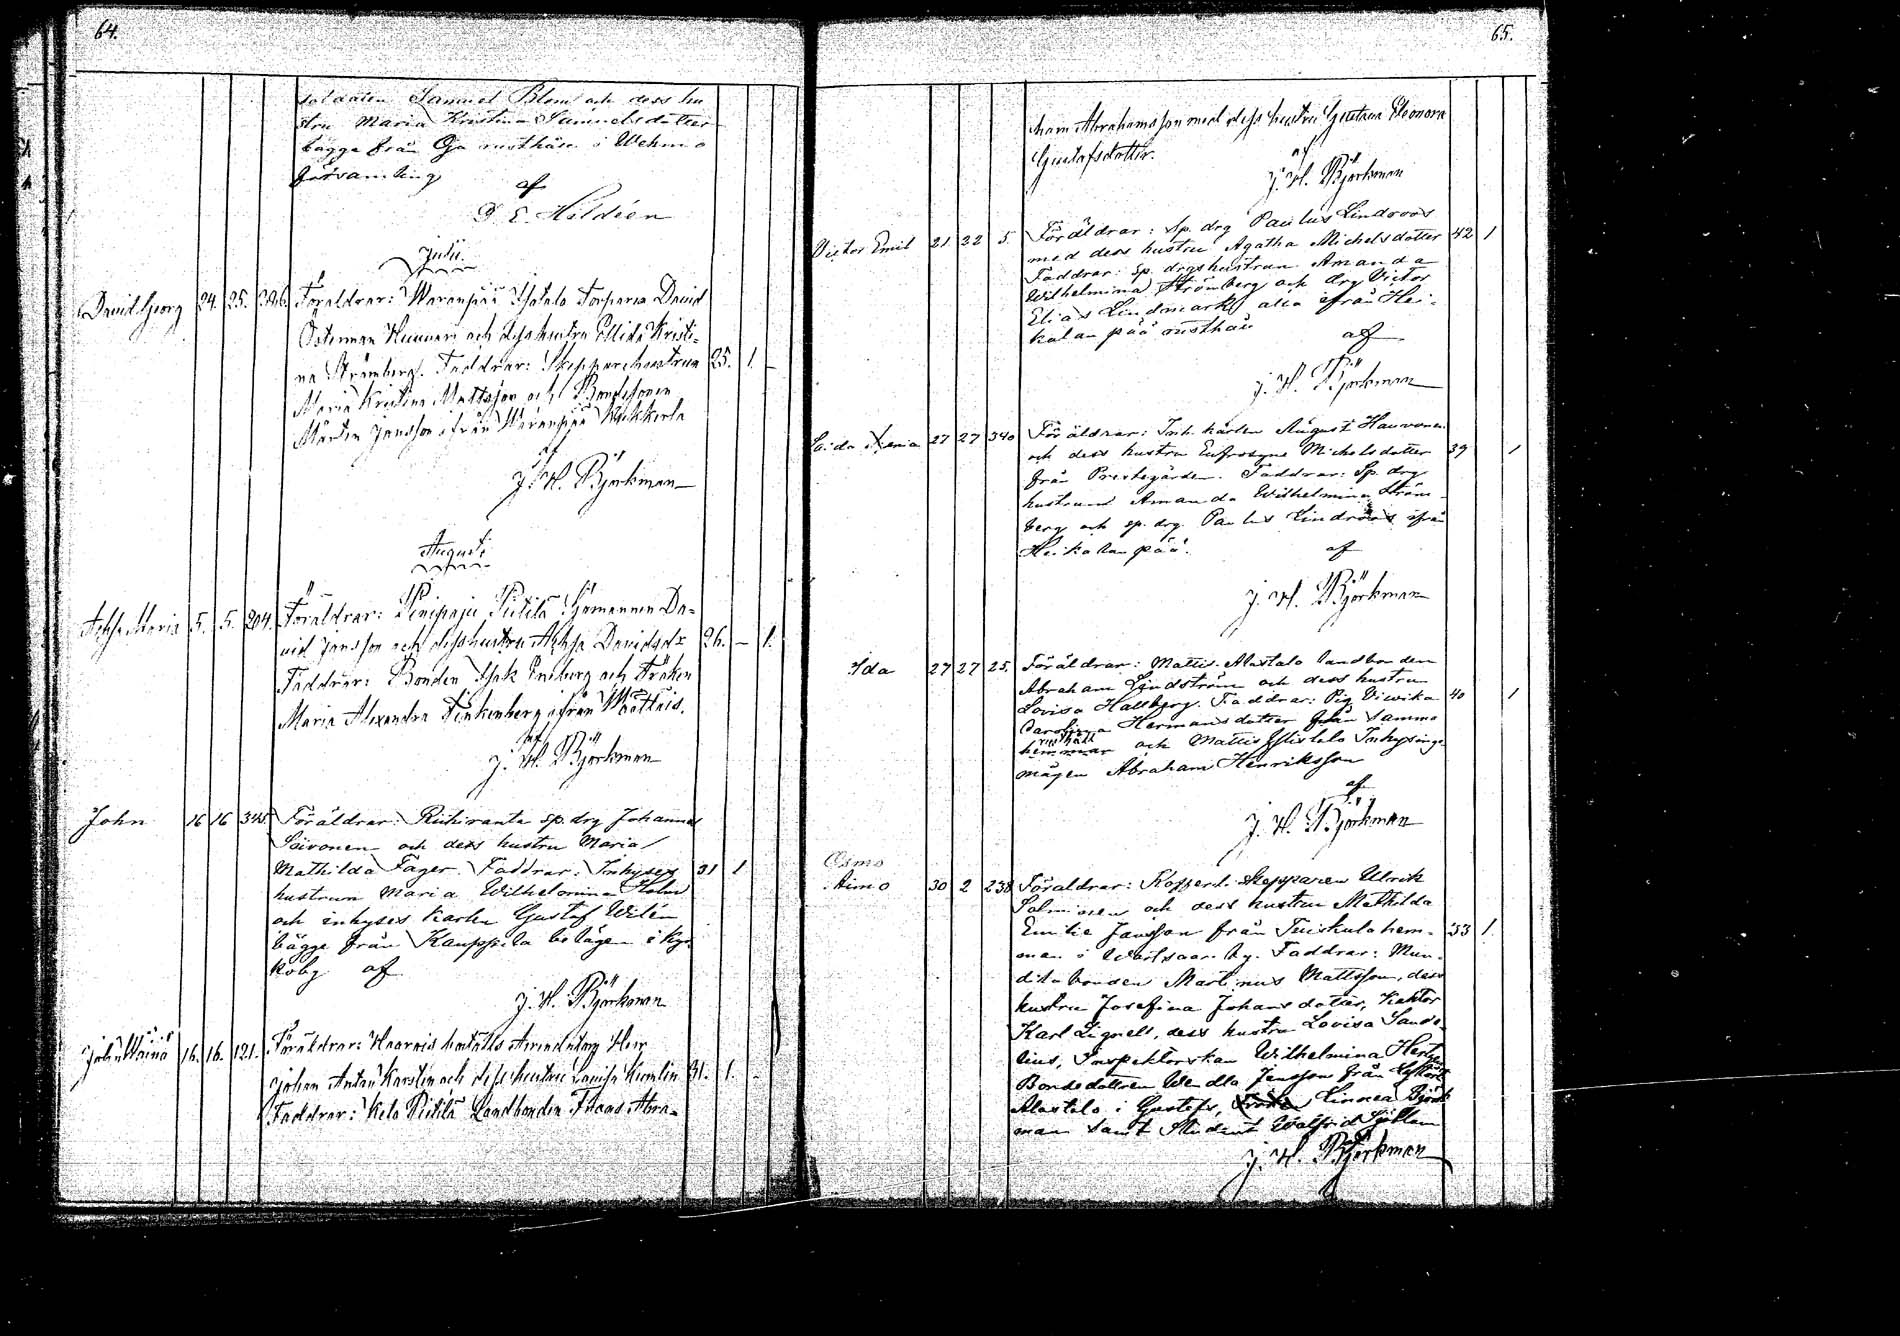 64.
soldaten Samuel Blom och dess hu
stru Maria Kristina Samuelsdotter
bägge från Oja rusthåll i Wehmo
församling
af
Hildéen
Julii.
David Georg 24. 25. 386. Föräldrar: Waranpää Torparen David
Österman och dess hustru Kristi-
na Strömberg. Faddrar: Skepparehustrun 25. 1. –
Maria Kristina Mattsson och Bondesonen
Mårten Jansson ifrån Waranpää Kukkerla
af
J. H. Björkman
Augusti
Maria 5. 5. 204. Föräldrar: Pinipaju Pietilä Sjömannen Da-
vid Jansson och dess hustru Davidsdr 26. – 1.
Faddrar: Bonden Isak Enberg och Fröken
Maria Alexandra Finkenberg ifrån Waattais.
af
J. H. Björkman
John 16 16 345. Föräldrar: Riihiranta sp. drg Johannes
Soivonen och dess hustru Maria
Mathilda Fager. Faddrar: Inhyses 31 1
hustrun Maria Wilhelmina Holm
och inhyses karlen Gustaf Wilén
bägge från Kauppila belägen i Kyr-
koby af
J. H. Björkman
Johan Wäinö 16. 16. 121. Föräldrar: Arrendatorn Herr
Johan Anton Karsten och dess hustru Lovisa Kumlin 31. 1. –
Faddrar: Keta Pietilä Landbonden Abra-
65.
ham Abrahamsson med dess hustru Gustava Eleonora
Gustafsdotter.
af
J. H. Björkman
Victor Emil 21 22 5. Föräldrar: sp. drg Paulus Lindroos 42 1
med dess hustru Agatha Michelsdotter
Faddrar: sp. drgshustrun Amanda
Wilhelmina Strömberg och drg Victor
Elias Lindmark, alla ifrån Hei-
kalanpää rusthåll
af
J. H. Björkman
Saida Xenia 27 27 340 Föräldrar: Inh. karlen August Hauvonen
och dess hustru Eufrosyne Michelsdotter 39 1
från Prestegården. Faddrar: Sp. drg
hustrun Amanda Wilhelmina Ström-
berg och sp. drg Paulus Lindroos ifrån
Heikalanpää.
af
J. H. Björkman
Ida 27 27 25. Föräldrar: Mattis Alastalo landbonden
Abraham Lindström och dess hustru
Lovisa Hallberg. Faddrar: Pig. Viwika 40 1
Carolina Hermansdotter från samma
rusthåll
hemman och Mattis Ylistalo Inhysinge
mågen Abraham Henriksson
af
J. H. Björkman
Osmo
Aimo 30 2 238 Föräldrar: Kofferd. skepparen Ulrik
Salminen och dess hustru Mathilda
Emilie Jansson från Tuiskula hem- 33 1.
man i Wartsaari by. Faddrar: Mun-
dila bonden Martinus Mattsson, dess
hustru Josefina Johansdotter, Kantor
Karl Lignell, dess hustru Lovisa Sande-
lius, Inspektorskan Wilhelmina Hertzen
Bondedottren Wendla Jansson från
Alastalo i Gustafs, Fröken Linnea Björk
man samt Student Walfrid Sjöblom
af
J. H. Björkman